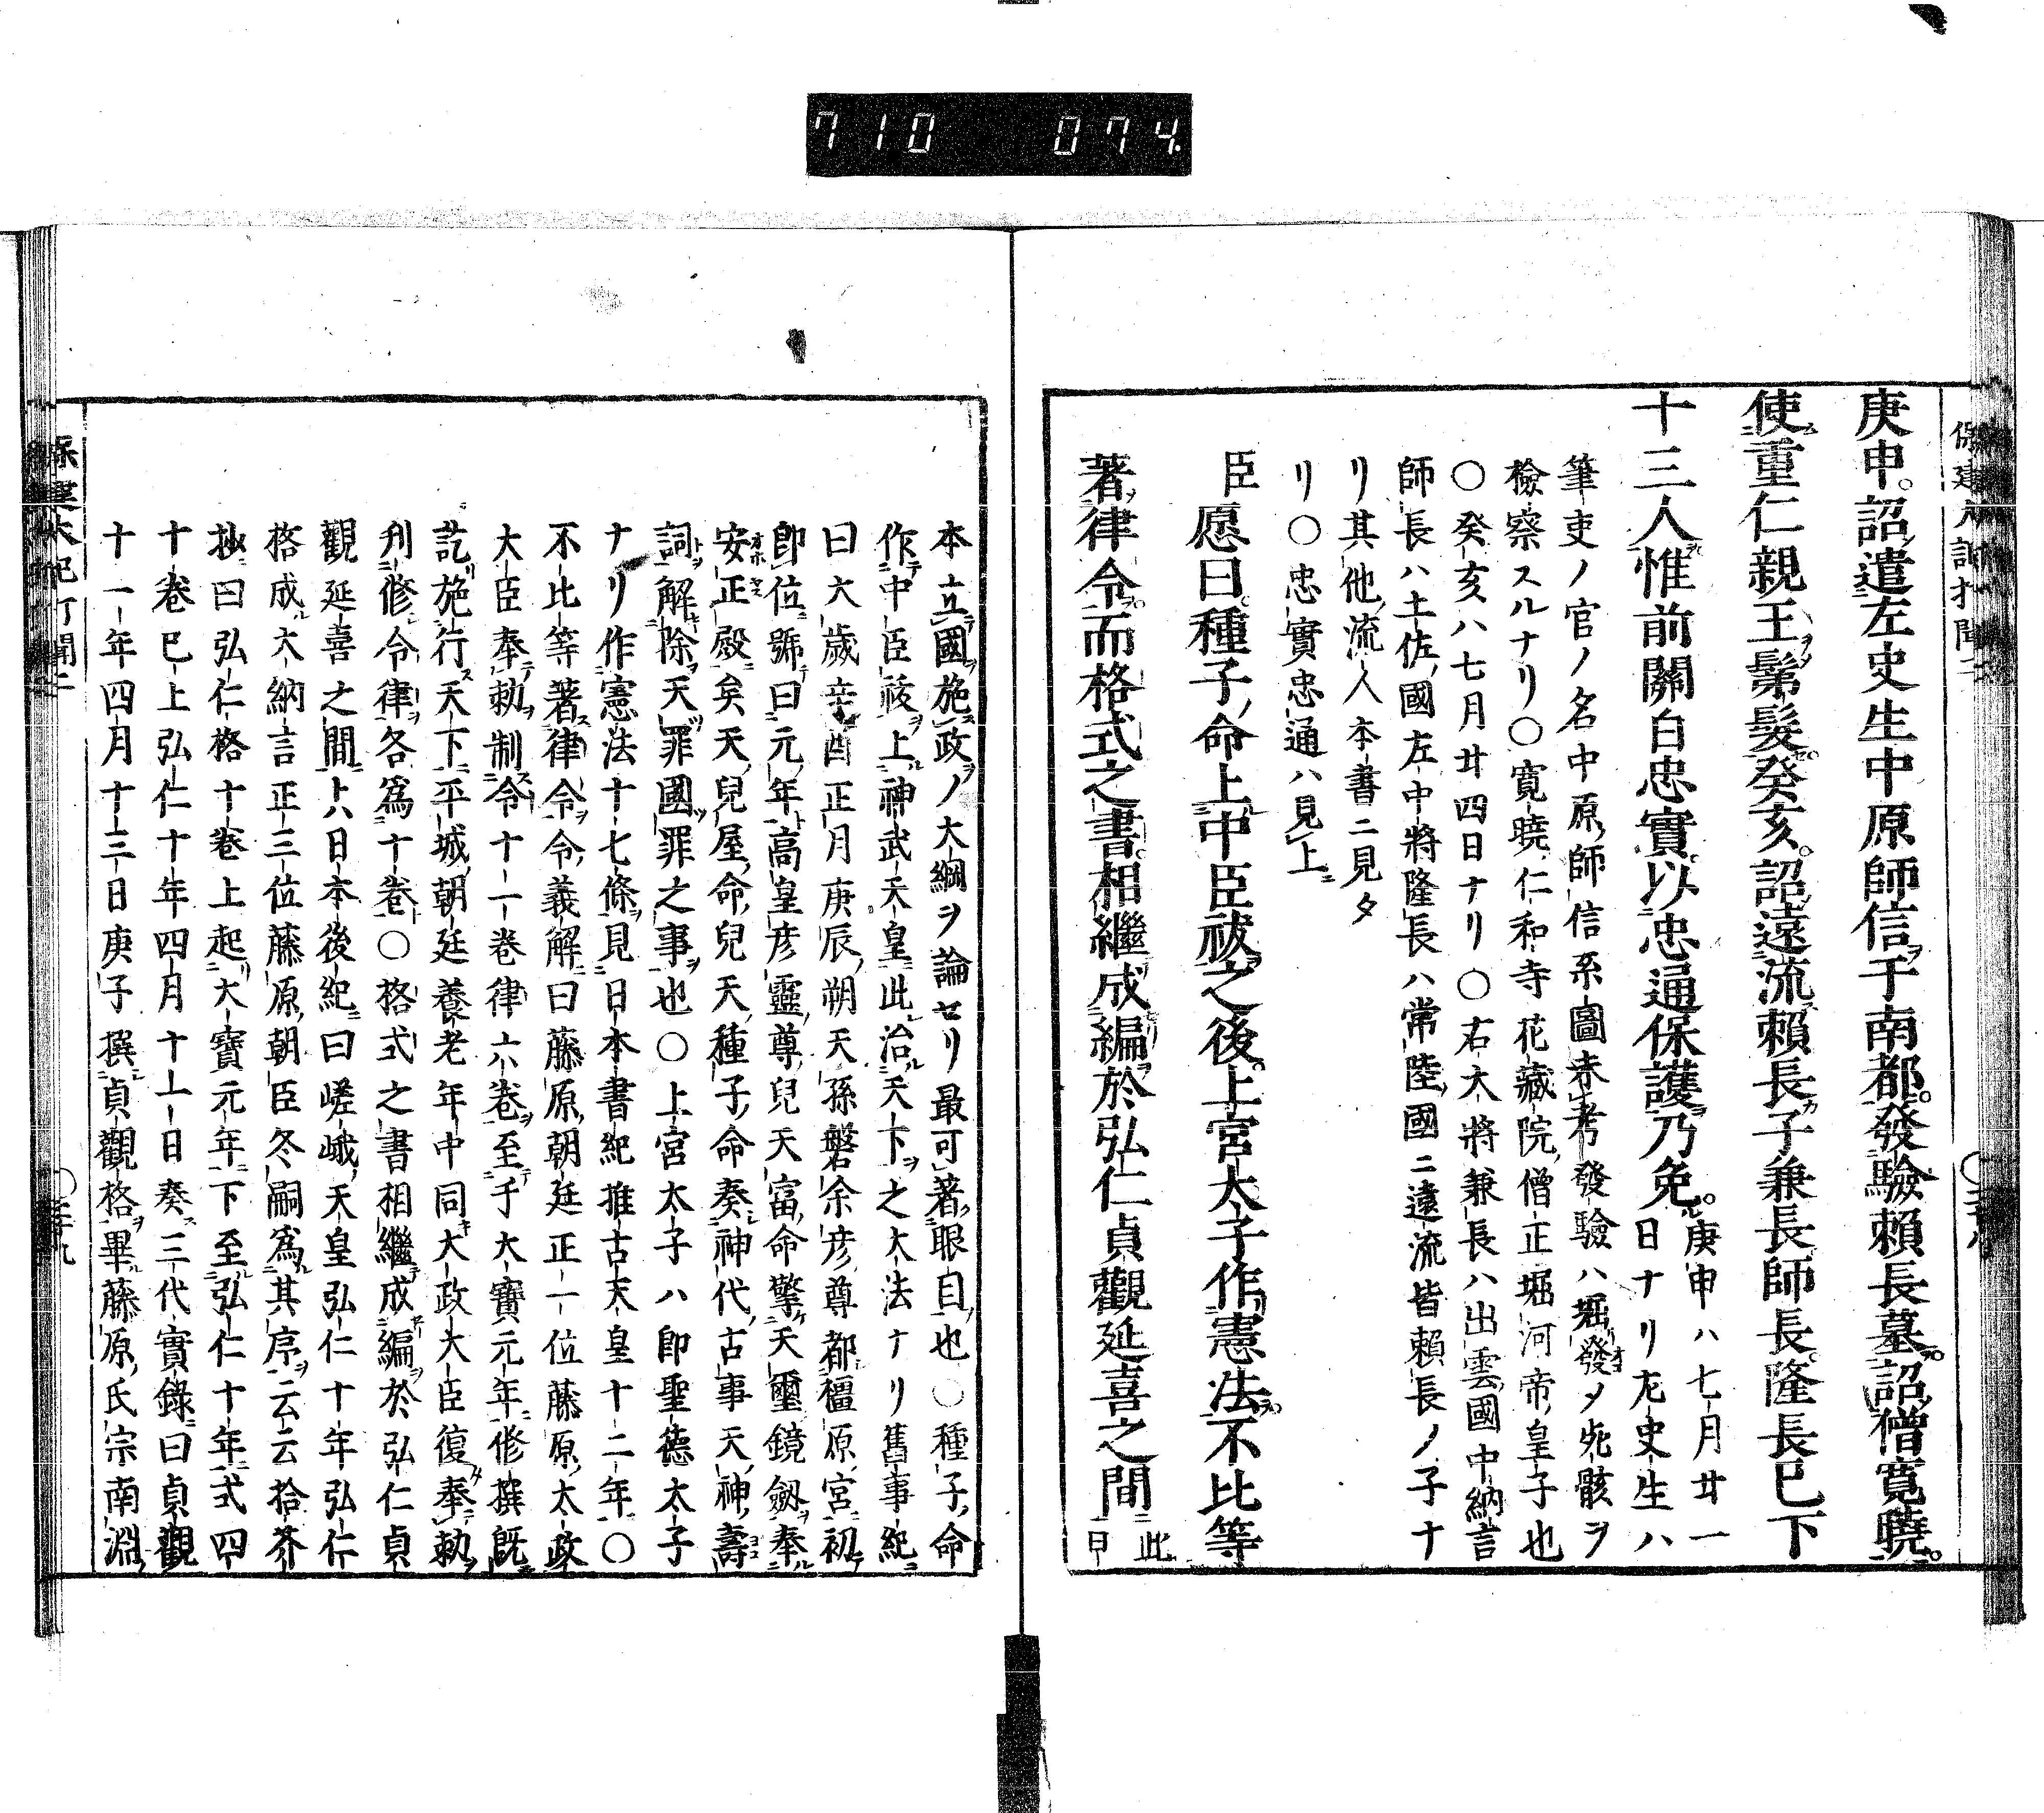 710 074
庚申詔遣左史生中原師信于南都發驗賴長墓詔僧寬曉
使重仁親王鬀髮癸亥詔遠流賴長子兼長師長隆長已下
十三人惟前關白忠實以忠通保護乃免庚申ハ七月廿一
日ナリ左史生ハ
筆吏ノ官ノ名中原師信系圖未考發驗ハ堀發メ死骸ヲ
檢察スルナリ○寬曉仁和寺花藏院僧正堀河帝皇子也
○癸亥ハ七月廿四日ナリ○右大將兼長ハ出雲國中納言
師長ハ土佐國左中將隆長ハ常陸國ニ遠流皆賴長ノ子十
リ其他流人本書ニ見タ
リ○忠實忠通ハ見上
臣愿曰種子命上中臣祓之後上宮太子作憲法不比等
著律令而格式之書相繼成編於弘仁貞觀延喜之間此
曰
本立國施政ノ大綱ヲ論セリ最可著眼目也○種子命
作中臣祓上神武天皇此治天下之大法ナリ舊事紀
曰大歲辛酉正月庚辰朔天孫磐余彦尊都橿原宮初
卽位號曰元年高皇彦靈尊兒天富命擎天璽鏡劔奉
安正殿矣天兒屋命兒天種子命奏神代古事天神壽
詞解除天罪國罪之事也○上宮太子ハ卽聖德太子
ナリ作憲法十七條見日本書紀推古天皇十二年○
不比等著律令令義解曰藤原朝廷正一位藤原太政
大臣奉勅制令十一卷律六卷至于大寶元年修撰既
訖施行天下平城朝廷養老年中同大政大臣復奉勅
刋修令律各爲十卷○格式之書相繼成編於弘仁貞
觀延喜之間上八日本後紀曰嵯峨天皇弘仁十年弘仁
格成大納言正三位藤原朝臣冬嗣爲其序云云拾芥
抄曰弘仁格十卷上起大寶元年下至弘仁十年式四
十卷巳上弘仁十年四月十上日奏三代實錄曰貞觀
十一年四月十三日庚子撰貞觀格畢藤原氏宗南淵